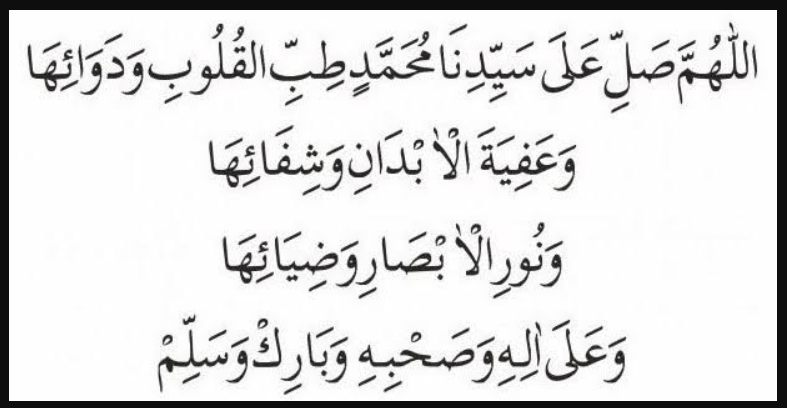 اللّٰهُمَّ صَلِّ عَلَى سَيِّدِنَا مُحَمَّدٍ طِبِّ القُلُوبِ وَدَوَائِهَا
وَعَفِيَةَ الْاَبْدَانِ وَشِفَائِهَا
وَنُورِ الْاَبْصَارِ وَضِيَائِهَا
وَعَلَى اٰلِهِ وَصَحْبِهِ وَبَارِكْ وَسَلِّمْ